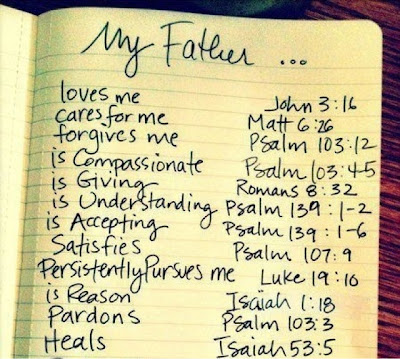 My Father ...
loves me John 3:16
cares for me Matt 6:26
forgives me Psalm 103:12
is Compassionate Psalm 103:4-5
is Giving Romans 8:32
is Understanding Psalm 139:1-2
is Accepting Psalm 139:1-6
Satisfies Psalm 107:9
Persistently Pursues me Luke 19:10
is Reason Isaiah 1:18
Pardons Psalm 103:3
Heals Isaiah 53:5